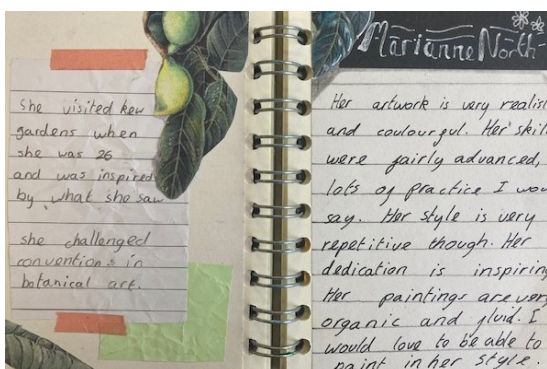 She visited kew
gardens when
she was 26
and was inspired
by what she saw
she challenged
conventions in
botanical art.
Marianne North
Her artwork is very realist
and coulourful. Her skil
were fairly advanced,
lots of practice I wou
say. Her style is very
repetitive though. Her
dedication is inspiring
Her paintings are very
organic and fluid. I
would love to be able to
paint in her style.